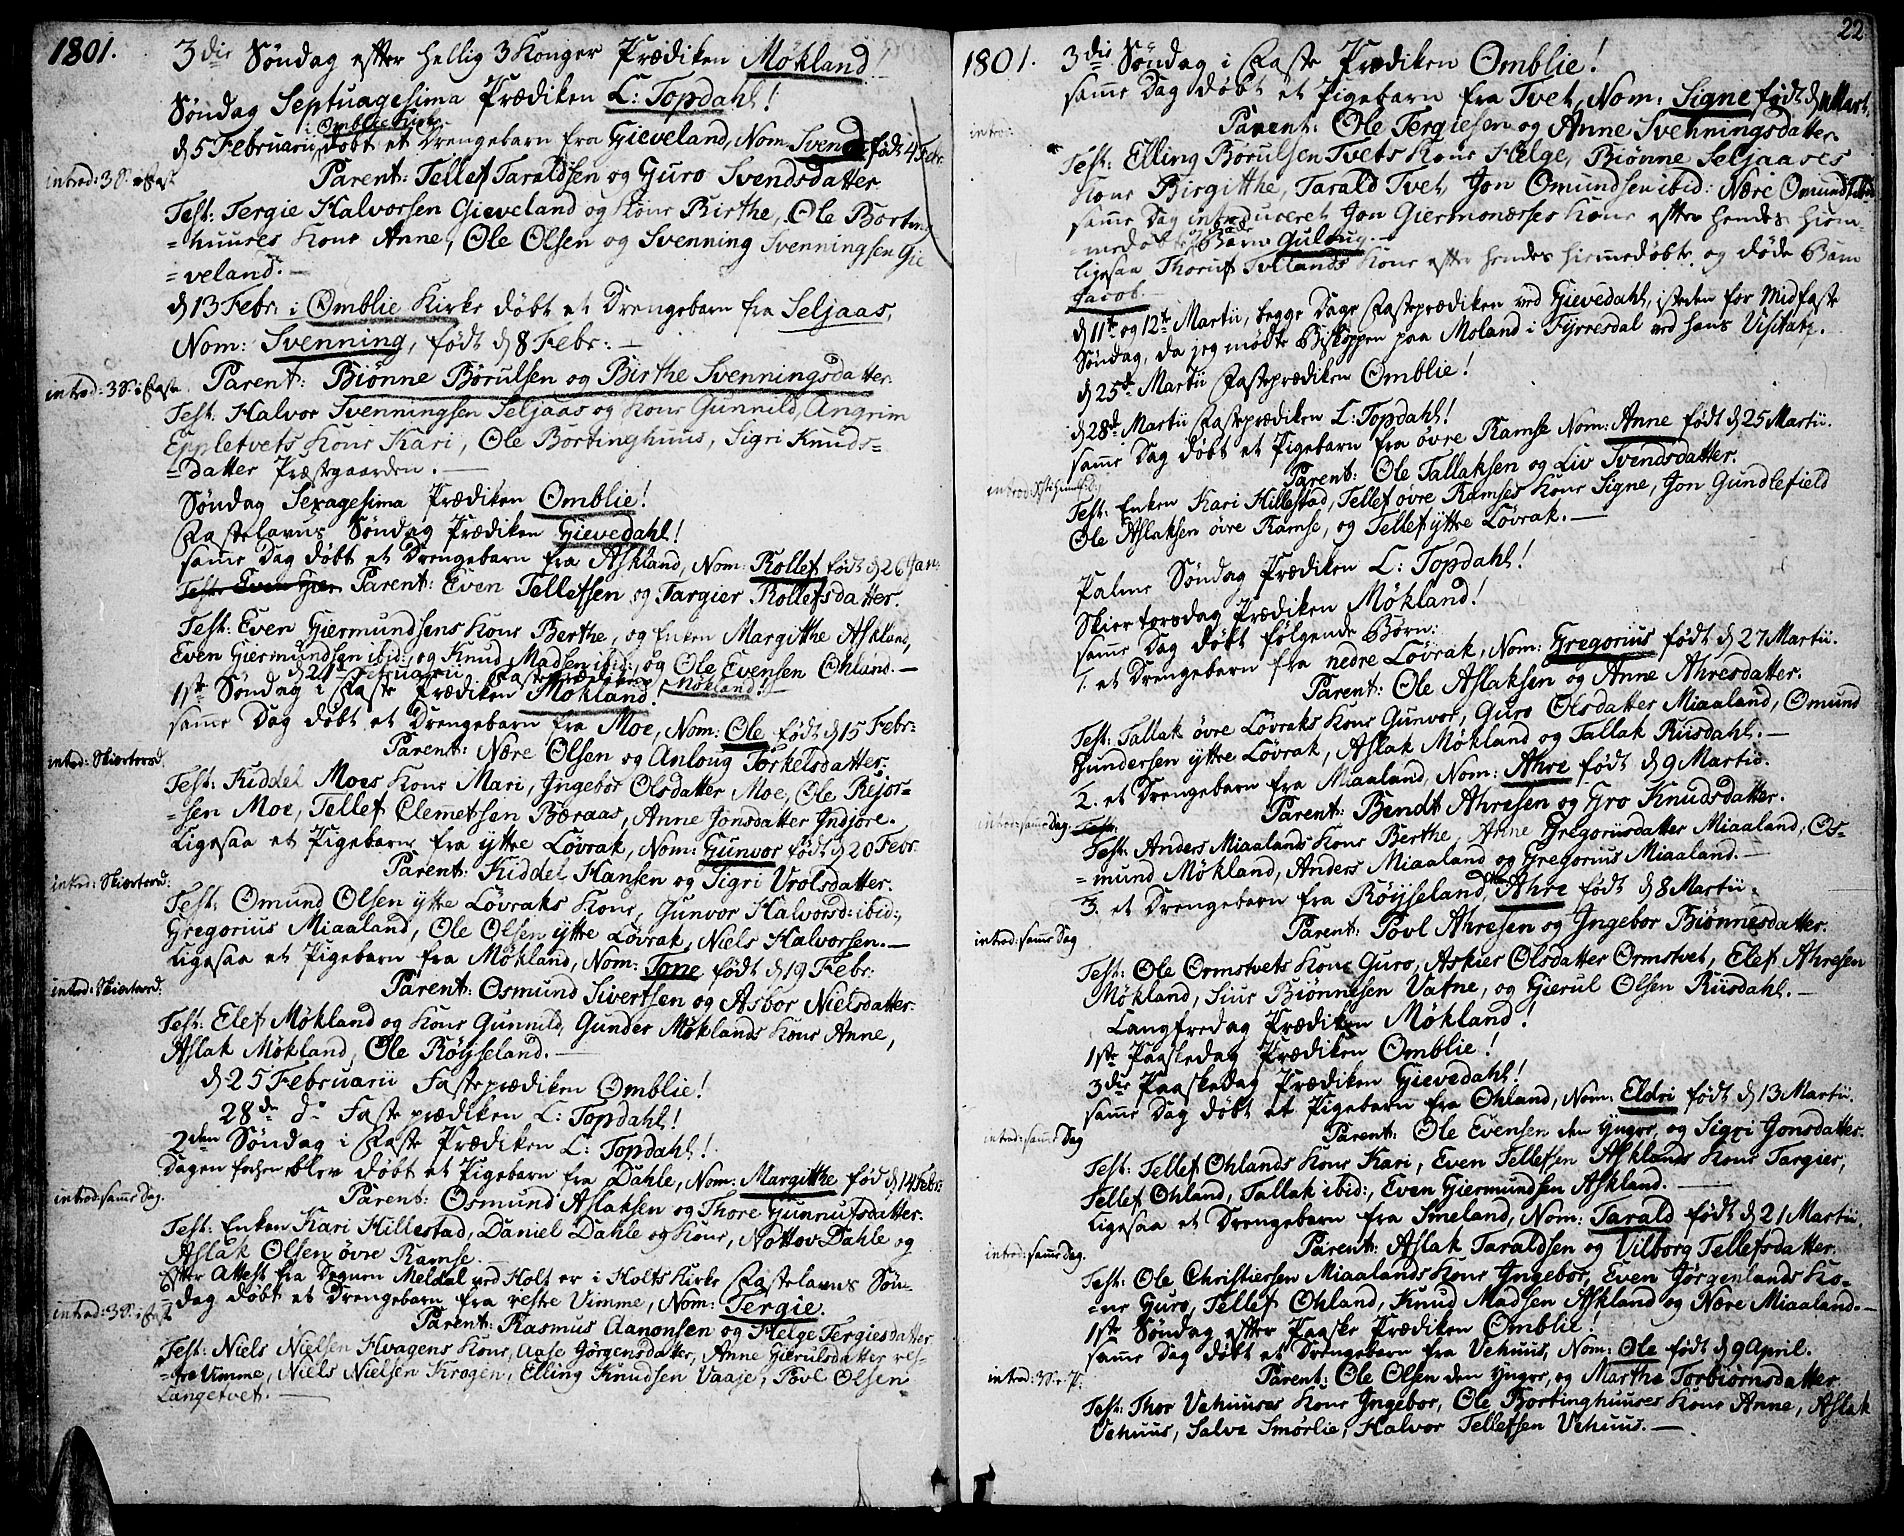 1801.
3die Søndag efter Hellig 3 Konger Prædiken Møkland!
Søndag Septuagesima Prædiken L: Topdahl!
i Omblie Kirke
d 5 Februarii døbt et Drengebarn fra Gieveland, Nom: Svend født d 4 Febr:
introd: 3 S: i Fast
Parent: Tellef Taraldsen og Guro Svendsdatter
Test: Tergie Halvorsen Gieveland og Kone Birthe, Ole Borting-
=huuses Kone Anne, Ole Olsen og Svenning Svenningsen Gie
=veland.—
d 13 Febr: i Omblie Kirke døbt et Drengebarn fra Seljaas,
Nom: Svenning, født d 8 Febr:—
introd: 3 S: i Faste
Parent: Biønne Børulsen og Birthe Svenningsdatter
Test: Halvor Svenningsen Seljaas og Kone Gunnild, Angrim
Eppletvets Kone Kari, Ole Bortinghuus, Sigri Knuds=
=datter Præstgaarden.—
Søndag Sexagesima Prædiken Omblie!
Fastelavns Søndag Prædiken Gievedahl!
samme Dag døbt et Drengebarn fra Askland, Nom: Rollef født d 26 Jan:
Test: Even Gier Parent: Even Tellefsen og Targier Rollefsdatter.
Test: Even Giermundsens Kone Berthe, og Enken Margitthe Askland,
Even Giermundsen ibid:, og Knud Madsen ibid:, og Ole Evensen Ohland.—
d 21 Februarii Fasteprædiken Møkland!
1ste Søndag i Faste Prædiken Møkland!
samme Dag døbt et Drengebarn fra Moe, Nom: Ole født d 15 Febr:
introd: Skiertorsd.
Parent: Nære Olsen og Anloug Torkelsdatter.
Test: Kiddel Moes Kone Mari, Ingebor Olsdatter Moe, Ole Rejer=
=sen Moe, Tellef Clemetsen Bæraas, Anne Jonsdatter Indjore.
Ligesaa et Pigebarn fra yttre Løvrak, Nom: Gunvor født d 20 Febr.
introd: Skiertorsd.
Parent: Kiddel Hansen og Sigri Vrolsdatter.
Test: Omund Olsen yttre Løvraks Kone, Gunvor Halvorsd: ibid:,
Gregorius Miaaland, Ole Olsen yttre Løvrak, Niels Halvorsen.—
Ligesaa et Pigebarn fra Møkland, Nom: Tone født d 19 Febr:
introd: Skiertorsd.
Parent: Osmund Sivertsen og Asbor Nielsdatter.
Test: Elef Møkland og Kone Gunnild, Gunder Møklands Kone Anne,
Aslak Møkland, Ole Røyseland.—
d 25 Februarii Fasteprædiken Omblie!
28de do Faste prædiken L: Topdahl!
2den Søndag i Faste Prædiken L: Topdahl!
Dagen forhen blev døbt et Pigebarn fra Dahle, Nom: Margitthe fød d 14 Febr:
introd: samme Dag.
Parent: Osmund Aslaksen og Thore Gunnufsdatter.
Test: Enken Kari Hillestad, Daniel Dahle og Kone, Nottov Dahle og
Aslak Olsen øvre Ramse.
Efter Attest fra Degnen Meldal ved Holt er i Holts Kirke Fastelavns Søn-
dag døbt et Drengebarn fra vestre Vimme, Nom: Tergie.
introd: 3 S: i Fast
Parent: Rasmus Aanonsen og Helge Tergiesdatter
Test: Niels Nielsen Hvagens Kone, Aase Jørgensdatter, Anne Gierulsdatter ves=
=tre Vimme, Niels Nielsen Krogen, Elling Knudsen Vaaje, Povl Olsen
Langetvet.—
22
1801. 3die Søndag i Faste Prædiken Omblie!
samme Dag døbt et Pigebarn fra Tvet, Nom: Signe født d 1 Mart.
introd:
Parent: Ole Tergiesen og Anne Svenningsdatter.
Test: Elling Børulsen Tvets Kone Helge, Biønne Seljaases
Kone Birgitthe, Tarald Tvet, Jon Omundsen ibid: Nære Omunds. ibid
samme Dag introduceret Jon Giermonæsses Kone efter hendes hiem-
=medøbte Barn Gulaug.—
Ligesaa Thoruf Tvetlands Kone efter hendes hiemmedøbte og døde Barn
Jacob
d 11te og 12te Martii, begge Dage Fasteprædiken ved Gievedahl, isteden for Midfaste
Søndag, da jeg mødte Biskoppen paa Moland i Fyrresdal ved hans Visitatz.
d 25de Martii Fasteprædiken Omblie!
d 28de Martii Fasteprædiken L: Topdahl!
samme Dag døbt et Pigebarn fra øvre Ramse Nom: Anne født d 25 Martii.
Parent: Ole Tallaksen og Liv Svendsdatter.
Test: Enken Kari Hillestad, Tellef øvre Ramses Kone Signe, Jon Gundlefield
Ole Aslaksen øvre Ramse, og Tellef yttre Løvrak.—
Palme Søndag Prædiken L: Topdahl!
Skiertorsdag Prædiken Møkland!
samme Dag døbt følgende Børn:
1. et Drengebarn fra nedre Løvrak, Nom: Gregorius født d 27 Martii.
Parent: Ole Aslaksen og Anne Ahresdatter.
Test: Tallak øvre Løvraks Kone Gunvor, Guro Olsdatter Miaaland, Omund
Gundersen yttre Løvrak, Aslak Møkland og Tallak Riisdahl.—
2. et Drengebarn fra Miaaland, Nom: Ahre født d 9 Martii.
introd: samme Dag.
Parent: Bendt Ahresen og Gro Knudsdatter.
Test: Anders Miaalands Kone Berthe, Anne Gregoriisdatter Miaaland, Os=
=mund Møkland, Anders Miaaland og Gregorius Miaaland.—
3. et Drengebarn fra Røyseland, Nom: Ahre født d 8 Martii.
introd: samme Dag
Parent: Povl Ahresen og Ingebor Biønnesdatter.
Test: Ole Ormstvets Kone Guro, Askier Olsdatter Ormstvet, Elef Ahresen
Møkland, Siur Biønnesen Vatne, og Gierul Olsen Riisdahl.—
Langfredag Prædiken Møkland!
1ste Paaskedag Prædiken Omblie!
3die Paaskedag Prædiken Gievedahl!
samme Dag døbt et Pigebarn fra Ohland, Nom: Eldri født d 13 Martii.
introd: samme Dag
Parent: Ole Evensen den Yngre, og Sigri Jonsdatter.
Test: Tellef Ohlands Kone Kari, Even Tellefsen Asklands Kone Targier,
Tellef Ohland, Tallak ibid:, Even Giermundsen Askland.—
Ligesaa et Drengebarn fra Smeland, Nom: Tarald født d 21 Martii.
introd: samme Dag.
Parent: Aslak Taraldsen og Vilborg Tellefsdatter.
Test: Ole Christiersen Miaalands Kone Ingebor, Even Jørgenlands Ko=
=ne Guro, Tellef Ohland, Knud Madsen Askland og Nære Miaaland.—
1ste Søndag efter Paaske Prædiken Omblie!
samme Dag døbt et Drengebarn fra Vehuus, Nom: Ole født d 9 April.
introd: 3 S: e P.
Parent: Ole Olsen den Yngre, og Marthe Torbiørnsdatter.
Test: Thor Vehuuses Kone Ingebor, Ole Bortinghuuses Kone Anne, Aslak
Vehuus, Salve Smørlie, Halvor Tellefsen Vehuus.—